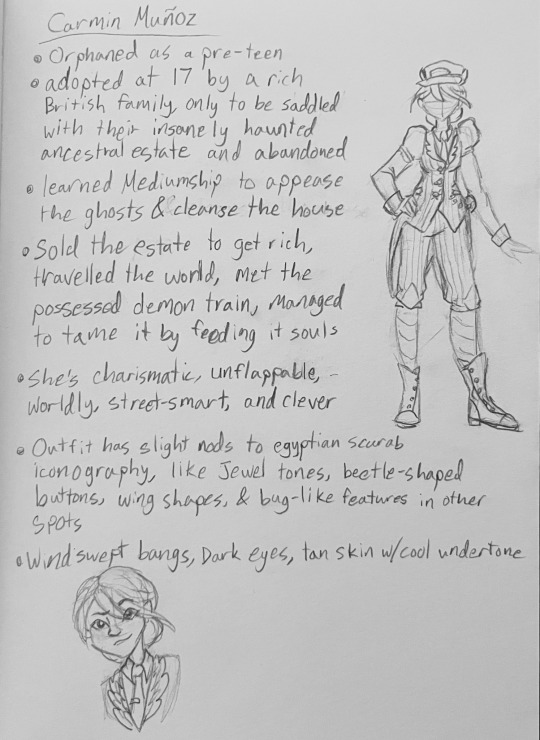 Carmin Muñoz
• Orphaned as a pre-teen
• adopted at 17 by a rich
British family, only to be saddled
with their insanely haunted
ancestral estate and abandoned
• learned Mediumship to appease
the ghosts & cleanse the house
• Sold the estate to get rich,
travelled the world, met the
possessed demon train, managed
to tame it by feeding it souls
• She's charismatic, unflappable, -
worldly, street-smart, and clever
• Outfit has slight nods to egyptian scarab
iconography, like Jewel tones, beetle-shaped
buttons, wing shapes, & bug-like features in other
spots
• Windswept bangs, Dark eyes, tan skin w/cool undertone